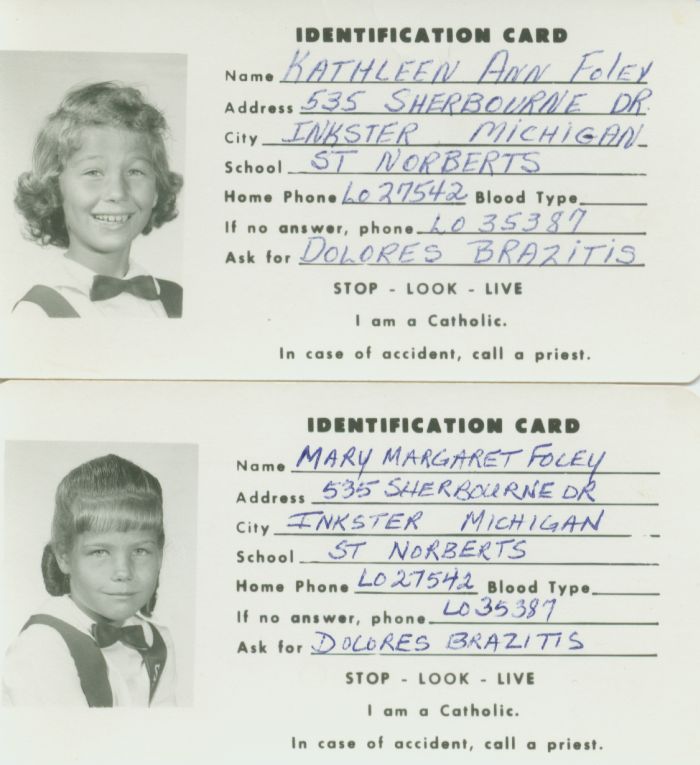 IDENTIFICATION CARD
Name KATHLEEN ANN FOLEY
Address 535 SHERBOURNE DR.
City INKSTER MICHIGAN
School ST NORBERTS
Home Phone LO 27542 Blood Type
If no answer, phone LO 35387
Ask for DOLORES BRAZITIS
STOP - LOOK - LIVE
I am a Catholic.
In case of accident, call a priest.
IDENTIFICATION CARD
Name MARY MARGARET FOLEY
Address 535 SHERBOURNE DR
City INKSTER MICHIGAN
School ST NORBERTS
Home Phone LO27542 Blood Type
If no answer, phone LO35387
Ask for DOLORES BRAZITIS
STOP - LOOK - LIVE
I am a Catholic.
In case of accident, call a priest.